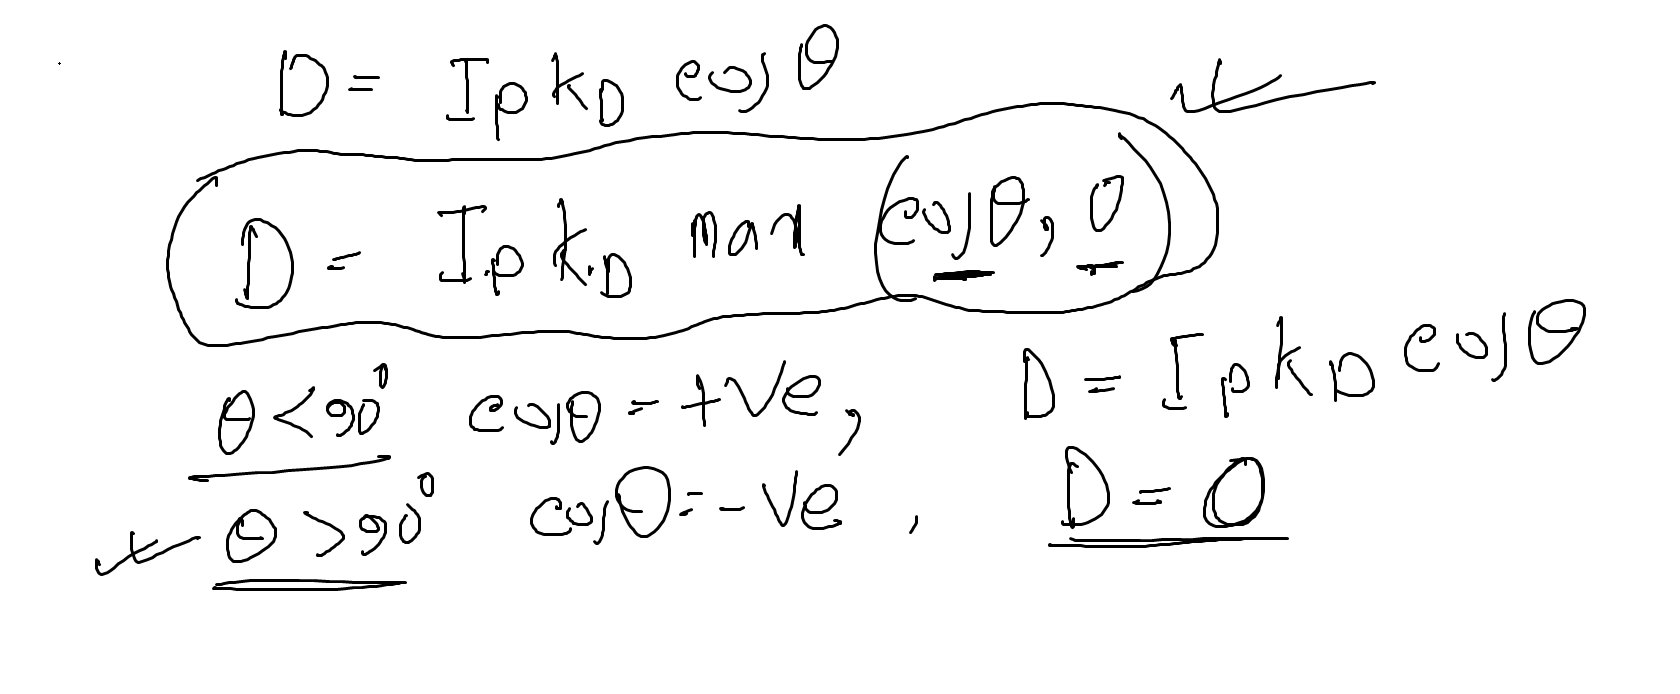 D = I_p k_D cos θ
D = I_p k_D max (cos θ, 0)
θ < 90° cos θ = +ve, D = I_p k_D cos θ
θ > 90° cos θ = -ve, D = 0